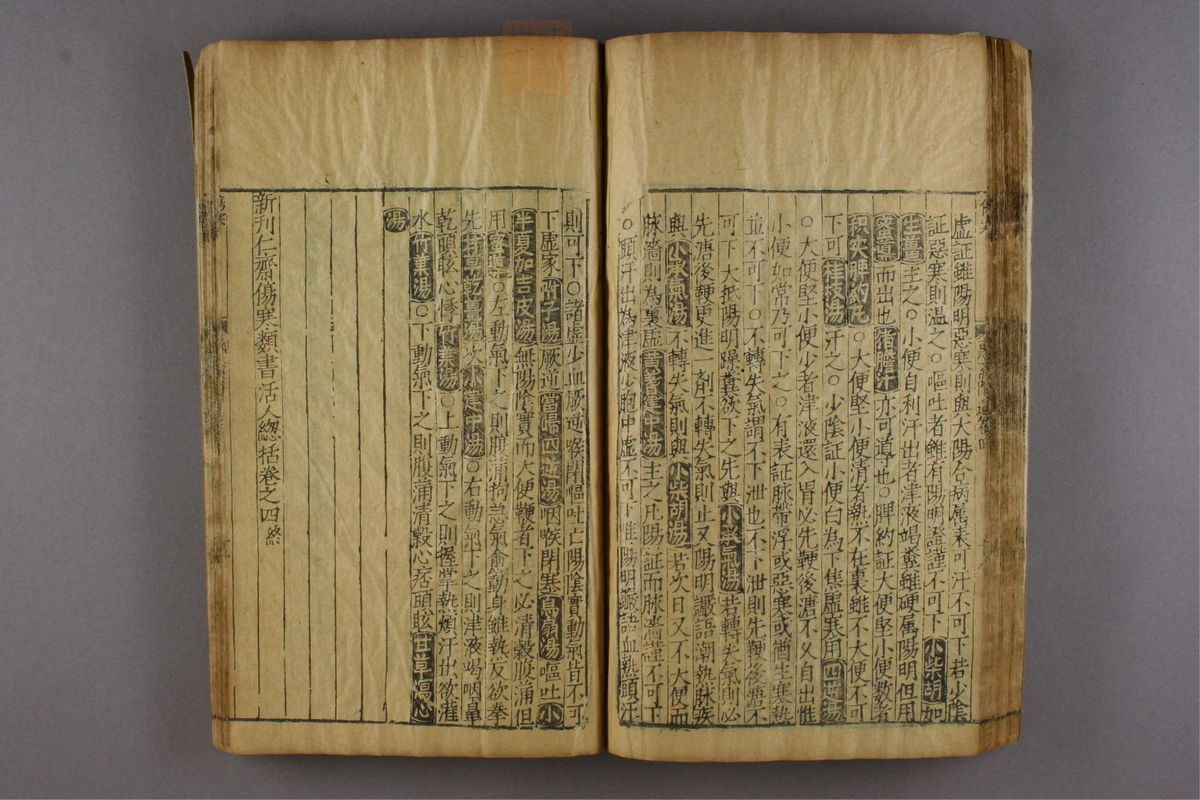 虛証雖陽明惡寒則與太陽合病属表可汗不可下若少陰
証惡寒則温之○嘔吐者雖有陽明證謹不可下小柴胡加
生薑主之○小便自利汗出者津液竭糞雖硬属陽明但用
蜜導而出也猪膽汁亦可導也○脾約証大便堅小便数者
枳实脾約丸○大便堅小便清者熱不在裏雖不大便不可
下可桂枝湯汗之○少陰証小便白為下焦虛寒用四逆湯
○大便堅小便少者津液還入胃必先鞕後溏不久自出惟
小便如常乃可下之○有表証脉帶浮或惡寒或洒生寒熱
並不可下○不轉失氣謂不下泄也不下泄則先鞕後溏不
可下大抵陽明躁糞欲下之先與小承氣湯若轉失氣則必
先溏後鞕更進一剤不轉失氣則止又陽明讝語潮熱脉疾
與小承氣湯不轉失氣則與小柴胡湯若次日又不大便而
脉濇則為裏虛黄耆建中湯主之凡陽証而脉濇謹不可下
○頭汗出為津液少胞中虛不可下惟陽明讝語血熱頭汗
則可下○諸虛少血厥逆喉閉嘔吐亡陽陰實動氣皆不可
下虛家附子湯厥逆當歸四逆湯咽喉閉塞烏扇湯嘔吐小
半夏加吉皮湯無陽陰實而大便鞕者下之必清穀腹滿但
用蜜導○左動氣下之則腹滿拘急氣俞動身雖熱反欲拳
先甘草乾薑湯次小建中湯○右動氣下之則津液竭咽鼻
乾頭眩心悸竹葉湯○上動氣下之則握掌熱煩汗出欲灌
水竹葉湯○下動氣下之則腹滿清穀心痞頭眩甘草瀉心
湯
新刊仁齋傷寒類書活人總括卷之四終